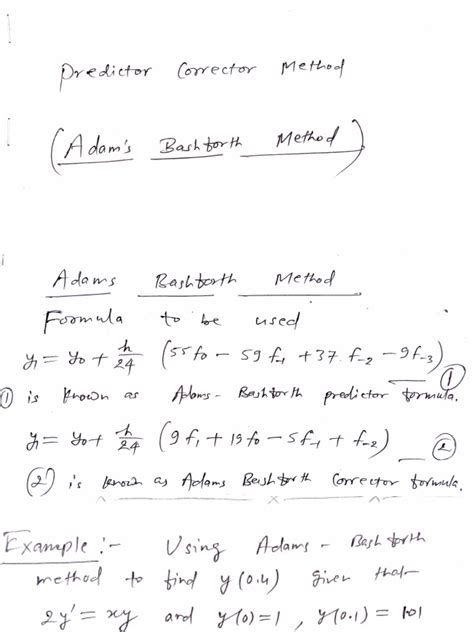 Predictor Corrector Method
(Adam's Bashforth Method)
Adams Bashforth Method
Formula to be used
y₁ = y₀ + h/24 (55f₀ - 59f₋₁ + 37f₋₂ - 9f₋₃) ①
① is known as Adams-Bashforth predictor formula.
y₁ = y₀ + h/24 (9f₁ + 19f₀ - 5f₋₁ + f₋₂) ②
② is known as Adams Bashforth Corrector formula.
Example :- Using Adams-Bashforth
method to find y(0.4) given that
2y' = xy and y(0)=1, y(0.1) = 1.01